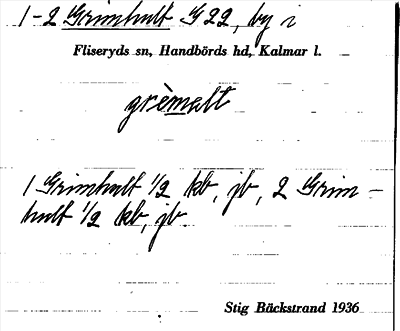 1-2 Grimhult G22, by i
Fliseryds sn, Handbörds hd, Kalmar l.
grèmalt
1 Grimhult 1/2 kb, jb, 2 Grim-
hult 1/2 kb, jb
Stig Bäckstrand 1936